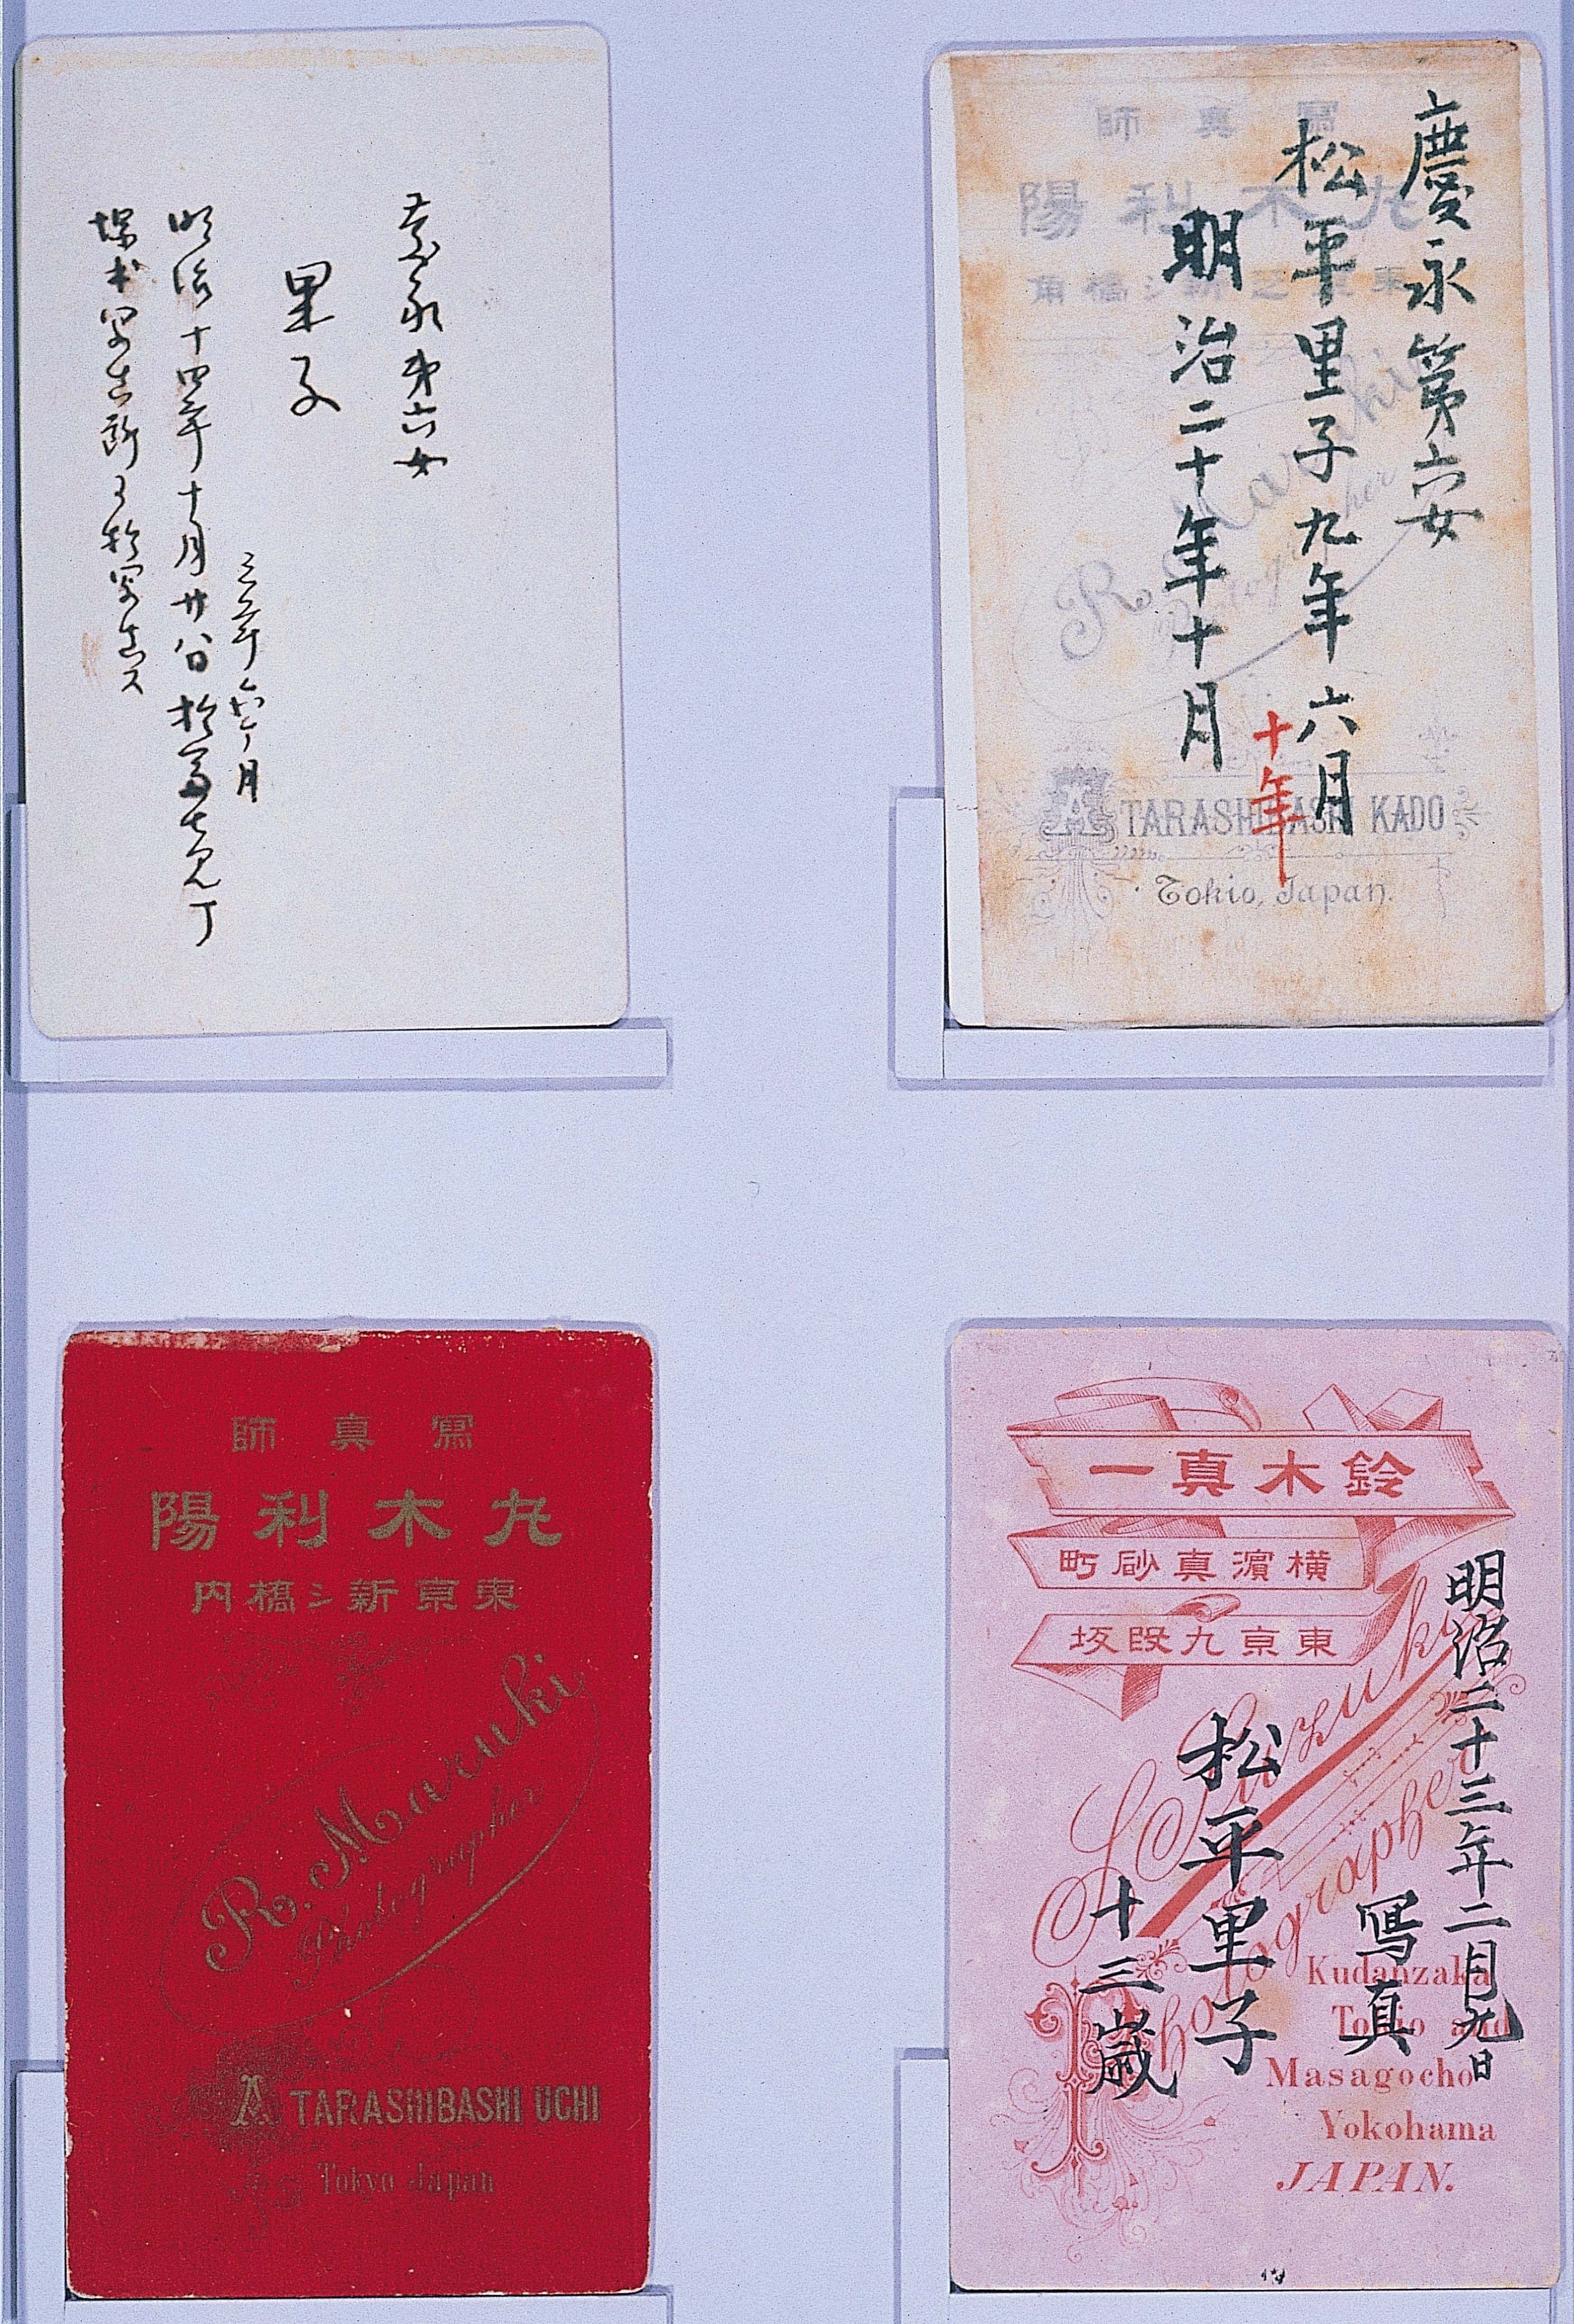 慶永第六女
里子
三年六ケ月
明治十四年十月廿八日
慶永第六女
松平里子九年六月
十年
明治二十年十月
寫真師
丸木利陽
東京芝新シ橋角
R. Maruki
Photographer
ATARASHIBASHI KADO
Tokio, Japan.
寫真師
丸木利陽
東京新シ橋内
R. Maruki
Photographer
ATARASHIBASHI UCHI
Tokyo Japan
鈴木真一
横濱真砂町
東京九段坂
S. Suzuki
Photographer
Kudanzaka
Tokio and
Masagocho
Yokohama
JAPAN.
明治二十三年二月九日
寫真
松平里子
十三歳